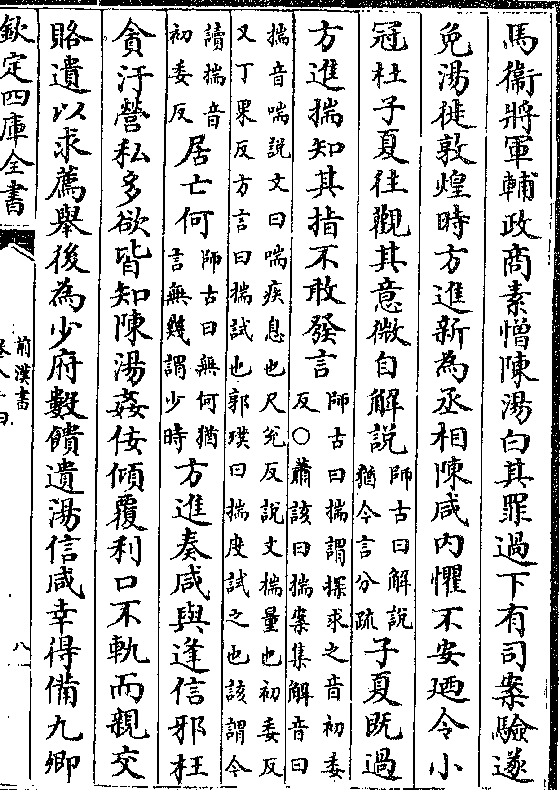 馬衛將軍輔政商素憎陳湯白其罪過下有司案驗遂
免湯徙敦煌時方進新為丞相陳咸内懼不安廼令小
冠杜子夏往觀其意微自解説師古曰解説猶今言分疏子夏既過
方進揣知其指不敢發言師古曰揣謂探求之音初委反○蕭該曰揣案集解音曰
揣音喘説文曰喘疾息也尺兖反説文揣量也初委反又丁果反方言曰揣試也郭璞曰揣度試之也該謂今
讀揣音初委反居亡何師古曰無何猶言無幾謂少時方進奏咸與逢信邪枉
貪汙營私多欲皆知陳湯姦佞傾覆利口不軌而親交
賂遺以求薦舉後為少府數饋遺湯信咸幸得備九卿
欽定四庫全書
前漢書
八